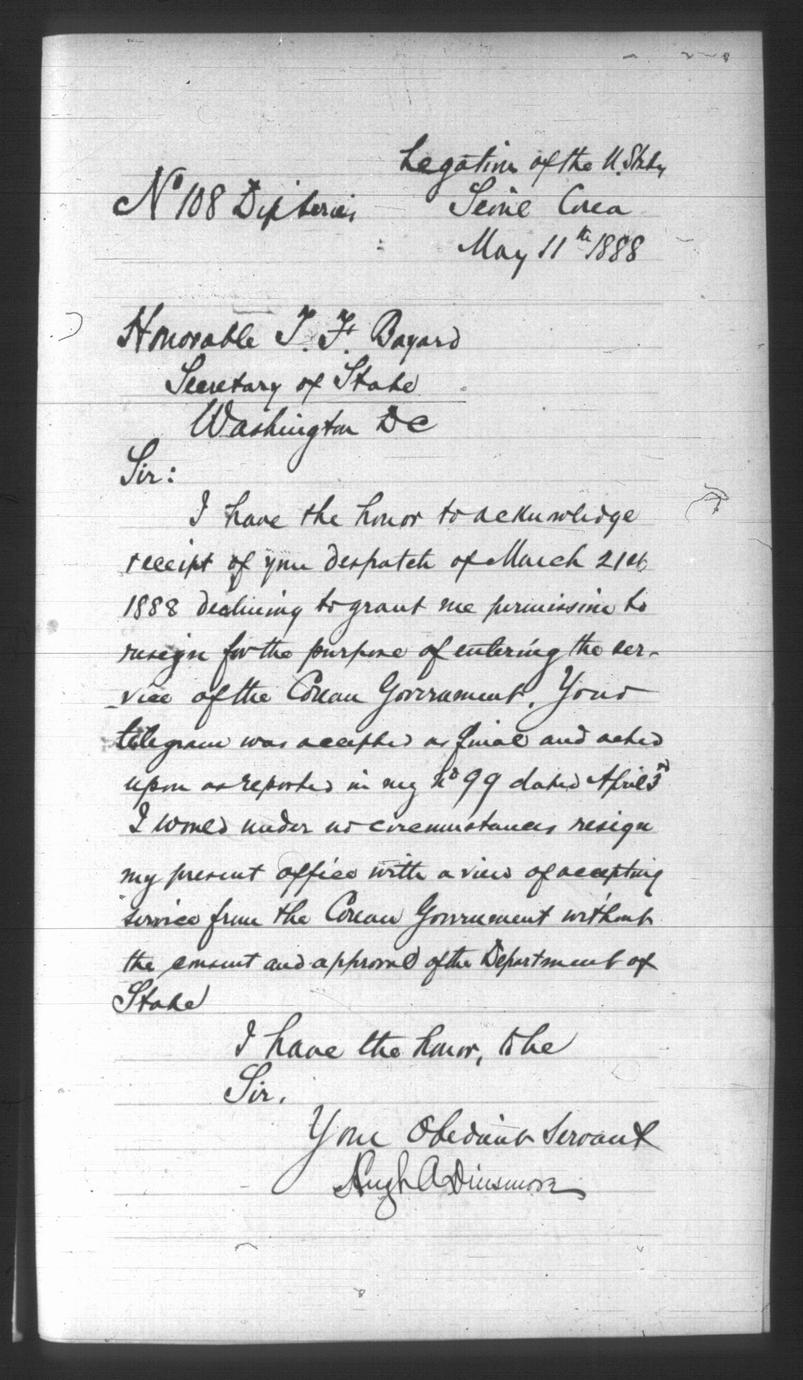 Legation of the U. States
Nº 108 Dip Series
Seoul Corea
May 11th 1888
Honorable T. F. Bayard
Secretary of State
Washington DC
Sir:
I have the honor to acknowledge
receipt of your despatch of March 21st
1888 declining to grant me permission to
resign for the purpose of entering the ser-
vice of the Corean Government. Your
telegram was accepted as final and acted
upon as reported in my Nº 99 dated April 3rd
I would under no circumstances resign
my present office with a view of accepting
service from the Corean Government without
the consent and approval of the Department of
State
I have the honor, to be
Sir,
Your Obedient Servant
Hugh A Dinsmore